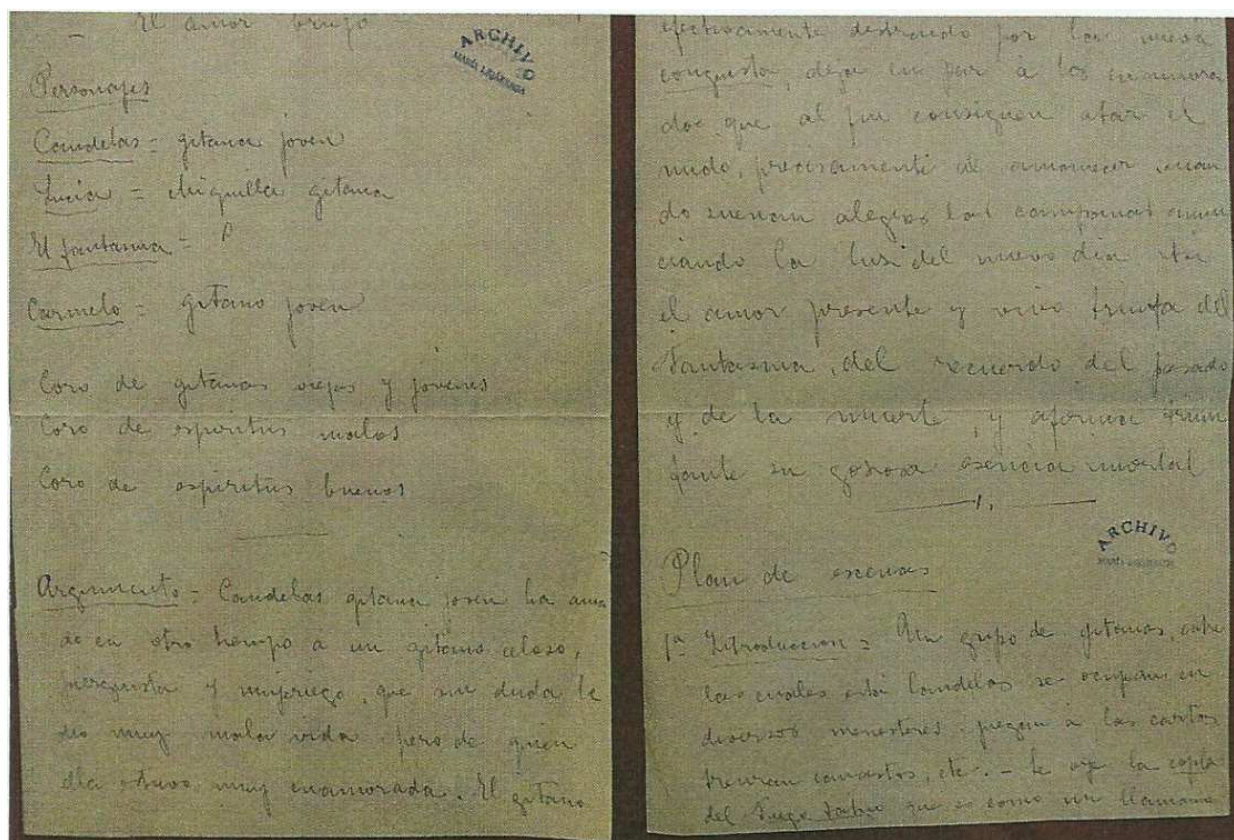 El amor brujo
ARCHIVO
MARÍA LEJÁRRAGA
Personajes
Candelas = gitana joven
Lucia = chiquilla gitana
El fantasma =
Carmelo = gitano joven
Coro de gitanas viejas y jovenes
Coro de espiritus malos
Coro de espiritus buenos
Argumento = Candelas gitana joven ha ama
do en otro tiempo a un gitano celoso,
juerguista y mujeriego, que sin duda le
dio muy mala vida pero de quien
ella estuvo muy enamorada. El gitano
efectivamente distraido por la nueva
conquista, deja en paz á los enamora
dos, que al fin consiguen atar el
nudo, precisamente al amanecer, cuan
do suenan alegres las campanas anun
ciando la luz del nuevo dia. Asi
el amor presente y vivo triunfa del
Fantasma, del recuerdo del pasado
y de la muerte, y afirma triun
fante su gozosa esencia inmortal
ARCHIVO
MARÍA LEJÁRRAGA
Plan de escenas
1ª Introduccion = Un grupo de gitanas, entre
las cuales está Candelas se ocupan en
diversos menesteres: juegan á las cartas
trenzan canastos, etc. - Se oye la copla
del fuego fatuo que es como un llamami